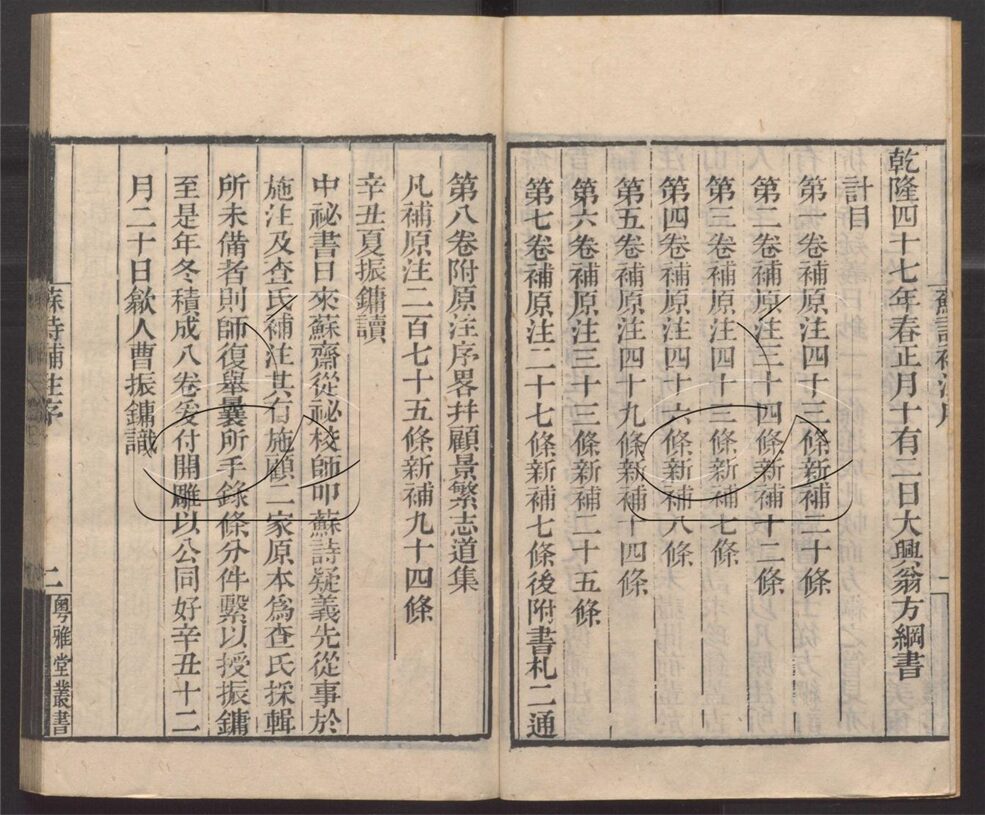 乾隆四十七年春正月十有二日大興翁方綱書
計目
第一卷補原注四十三條新補三十條
第二卷補原注三十四條新補十二條
第三卷補原注四十三條新補七條
第四卷補原注四十六條新補八條
第五卷補原注四十九條新補十四條
第六卷補原注三十三條新補二十五條
第七卷補原注二十七條新補七條後附書札二通
第八卷附原注序畧幷顧景繁志道集
凡補原注二百七十五條新補九十四條
辛丑夏振鏞讀
中祕書日來蘇齋從祕校師叩蘇詩疑義先從事於
施注及查氏補注其行施顧二家原本爲查氏採輯
所未備者則師復舉曩所手錄條分件繫以授振鏞
至是年冬積成八卷爰付開雕以公同好辛丑十二
月二十日歙人曹振鏞識
蘇詩補注序
二
粵雅堂叢書